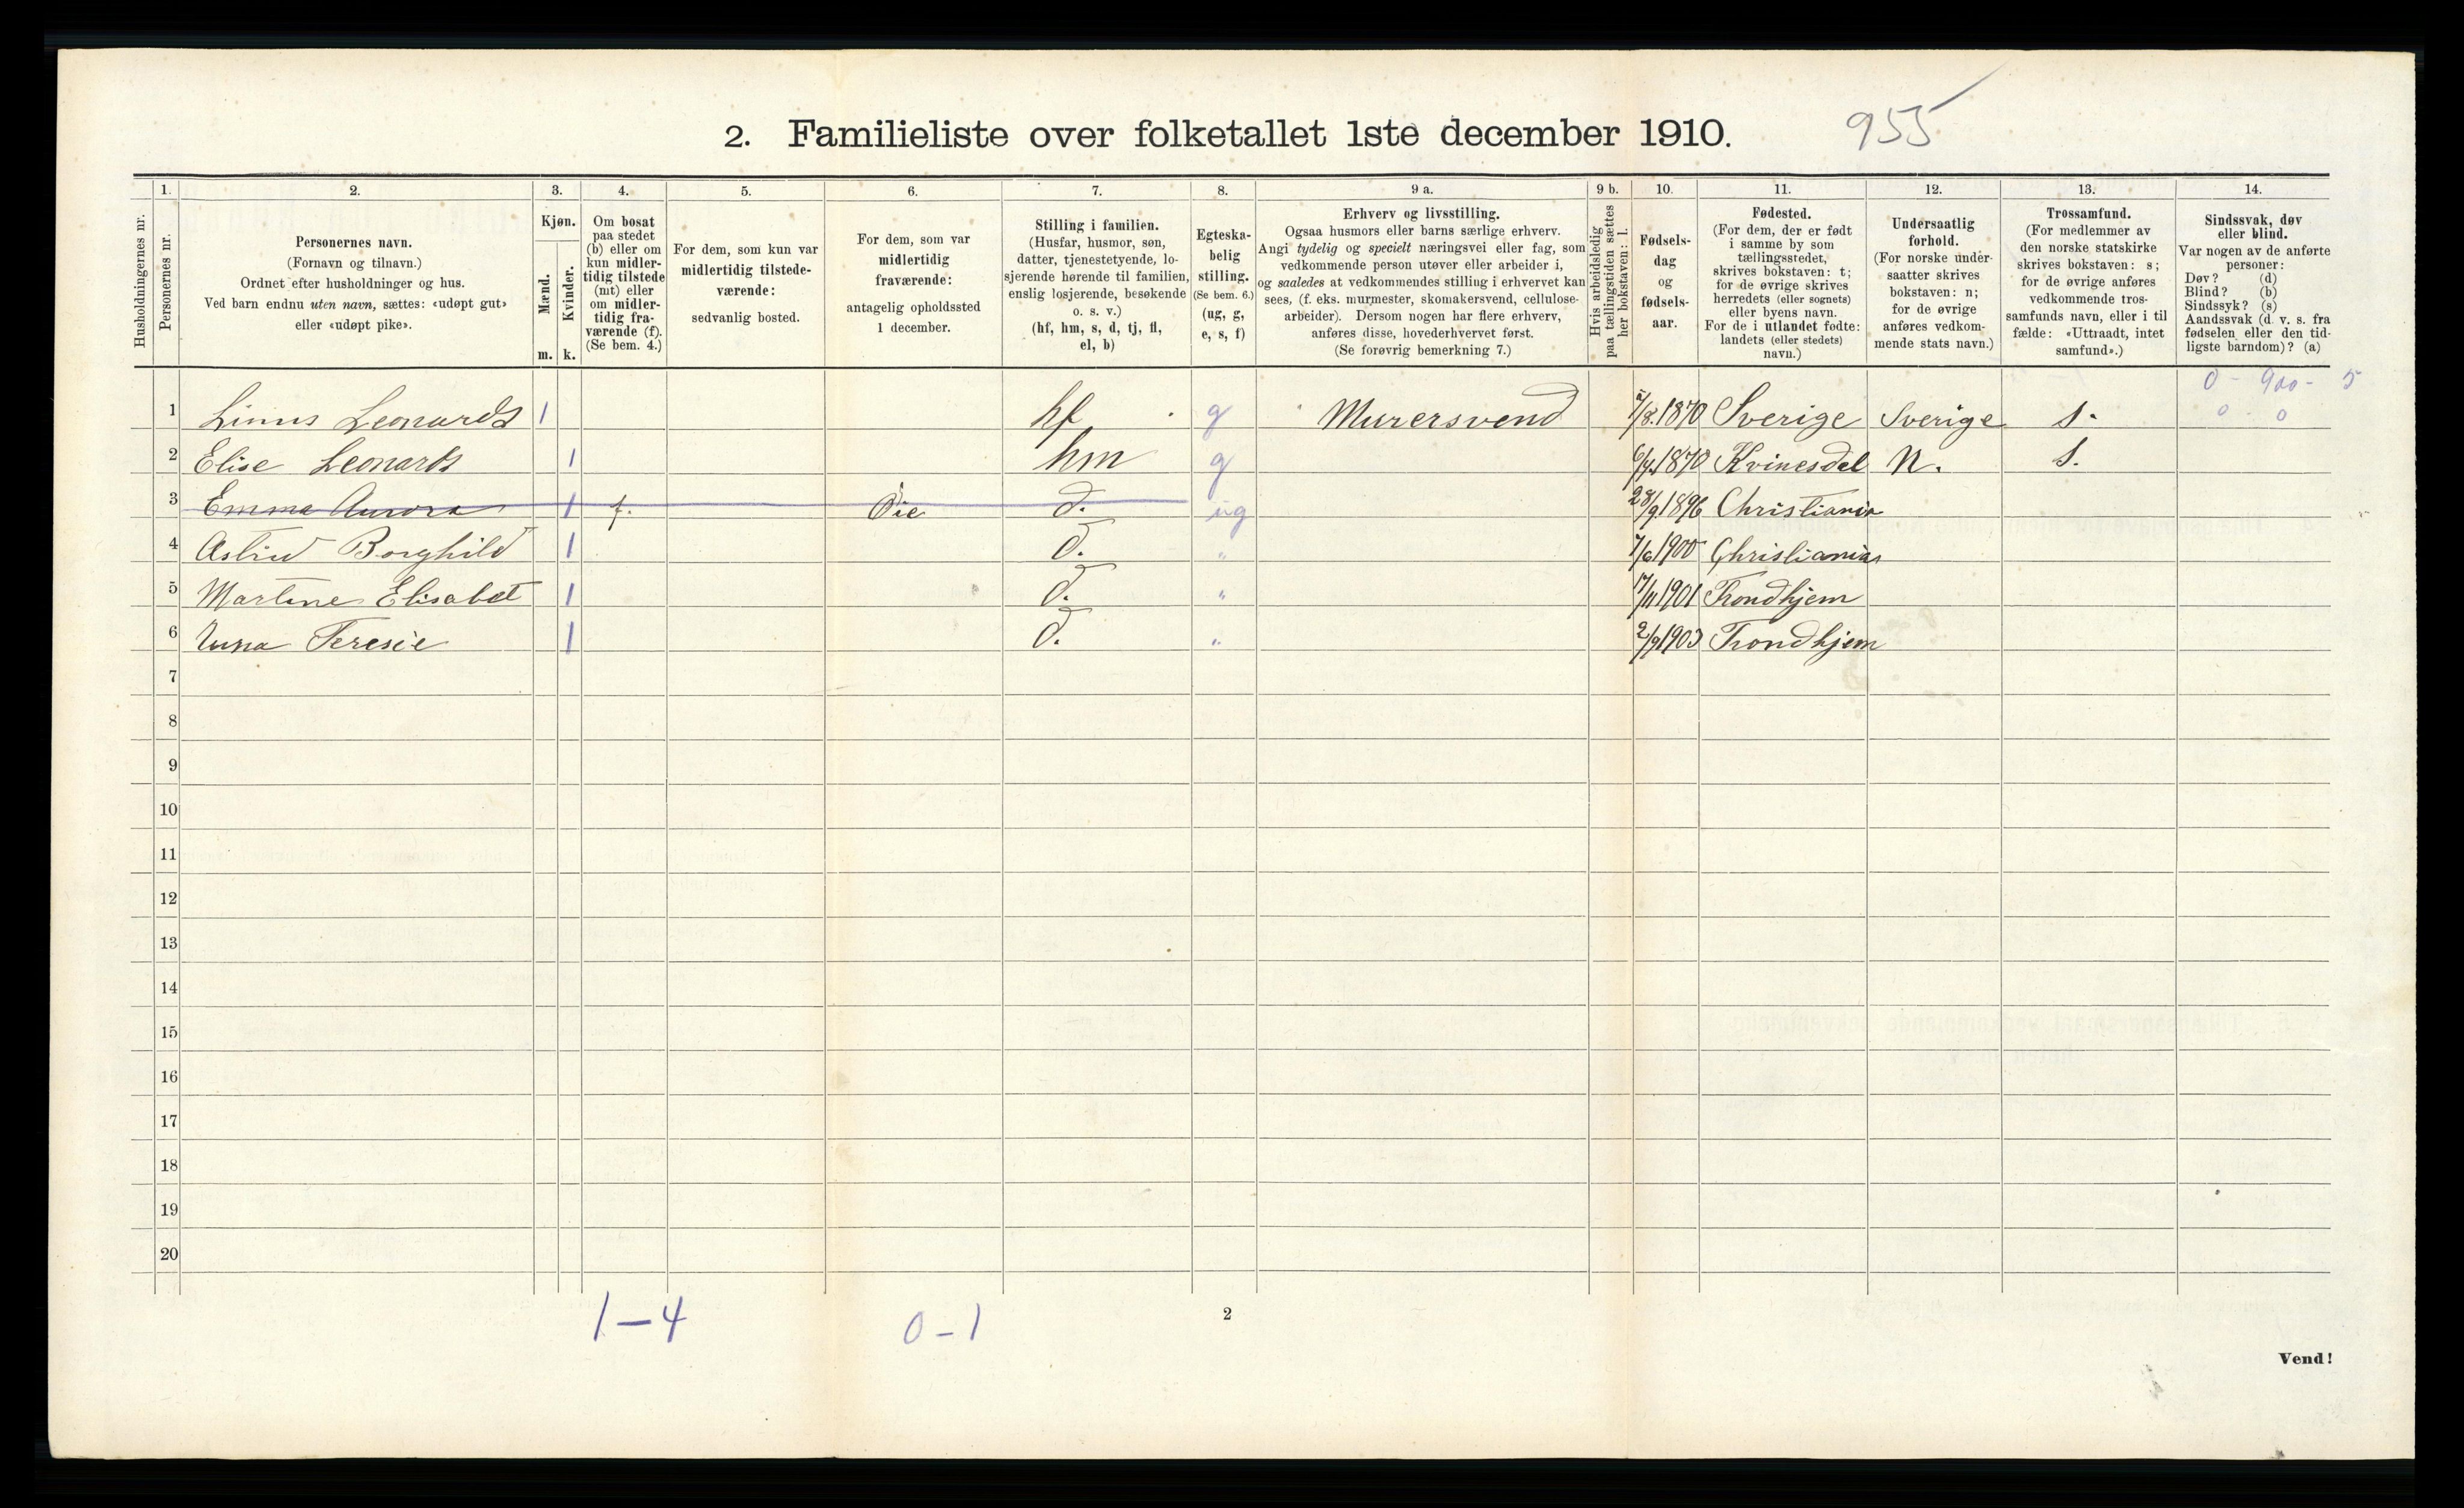 2. Familieliste over folketallet 1ste december 1910. 955
1. 2. 3. 4. 5. 6. 7. 8. 9 a. 9 b. 10. 11. 12. 13. 14.
Husholdningernes nr.
Personernes nr.
Personernes navn.
(Fornavn og tilnavn.)
Ordnet efter husholdninger og hus.
Ved barn endnu uten navn, sættes: «udøpt gut»
eller «udøpt pike».
Kjøn.
Mænd.
Kvinder.
m. k.
Om bosat
paa stedet
(b) eller om
kun midler-
tidig tilstede
(mt) eller
om midler-
tidig fra-
værende (f).
(Se bem. 4.)
For dem, som kun var
midlertidig tilstede-
værende:
sedvanlig bosted.
For dem, som var
midlertidig
fraværende:
antagelig opholdssted
1 december.
Stilling i familien.
(Husfar, husmor, søn,
datter, tjenestetyende, lo-
sjerende hørende til familien,
enslig losjerende, besøkende
o. s. v.)
(hf, hm, s, d, tj, fl,
el, b)
Egteska-
belig
stilling.
(Se bem. 6.)
(ug, g,
e, s, f)
Erhverv og livsstilling.
Ogsaa husmors eller barns særlige erhverv.
Angi tydelig og specielt næringsvei eller fag, som
vedkommende person utøver eller arbeider i,
og saaledes at vedkommendes stilling i erhvervet kan
sees, (f. eks. murmester, skomakersvend, cellulose-
arbeider). Dersom nogen har flere erhverv,
anføres disse, hovederhvervet først.
(Se forøvrig bemerkning 7.)
Hvis arbeidsledig
paa tællingstiden sættes
her bokstaven: l.
Fødsels-
dag
og
fødsels-
aar.
Fødested.
(For dem, der er født
i samme by som
tællingsstedet,
skrives bokstaven: t;
for de øvrige skrives
herredets (eller sognets)
eller byens navn.
For de i utlandet fødte:
landets (eller stedets)
navn.)
Undersaatlig
forhold.
(For norske under-
saatter skrives
bokstaven: n;
for de øvrige
anføres vedkom-
mende stats navn.)
Trossamfund.
(For medlemmer av
den norske statskirke
skrives bokstaven: s;
for de øvrige anføres
vedkommende tros-
samfunds navn, eller i til
fælde: «Uttraadt, intet
samfund».)
Sindssvak, døv
eller blind.
Var nogen av de anførte
personer:
Døv? (d)
Blind? (b)
Sindssyk? (s)
Aandssvak (d. v. s. fra
fødselen eller den tid-
ligste barndom)? (a)
0 - 900 - 5
1 Linus Leonards 1 hf g Murersvend 1870 Sverige Sverige s. 0 - 0
2 Elise Leonards 1 hm g 1870 Kvinesdal N. S.
3 Emma Aurora 1 f. Øie d. ug 28/9 1896 Christiania
4 Astrid Borghild 1 d. " 7/6 1900 Christiania
5 Martine Elisabet 1 d. " 17/11 1901 Trondhjem
6 Teresie 1 d. " 2/9 1903 Trondhjem
7
8
9
10
11
12
13
14
15
16
17
18
19
20
1-4 0-1 2
Vend!